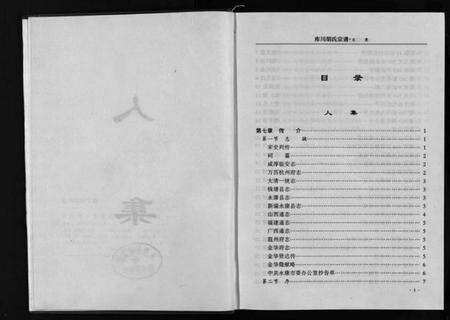 人
集
库川胡氏宗谱
目录
人集
第七章 传 介 1
第一节 志 1
宋史列传 1
祠墓 2
咸淳临安志 2
万历杭州府志 2
大清一统志 2
钱塘县志 3
永康县志 3
新编永康县志 3
山西通志 4
福建通志 5
广西通志 5
温州府志 5
金华府志 5
金华贤达传 5
金华徵献略 6
中共永康市委办公室抄告单 6
第二节 序 7
· 1 ·